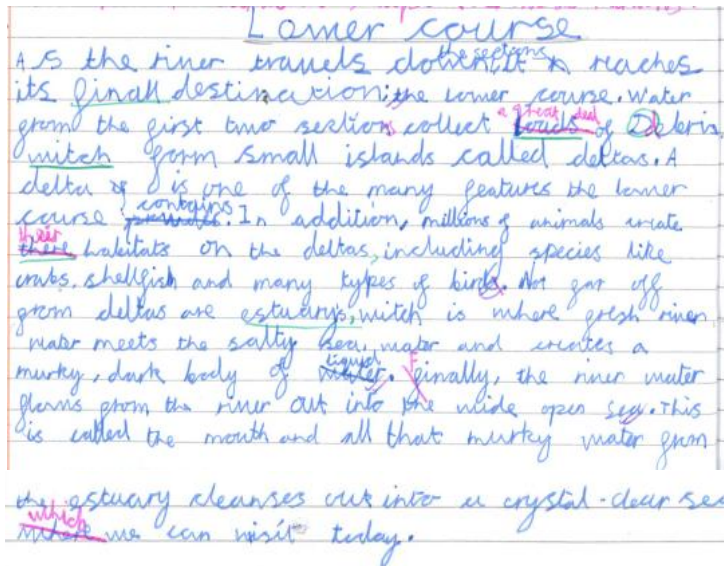 Lower course
As the river travels down, the sections it reaches
its finall destination; the lower course. Water
from the first two sections collect a great deal loads of Debris
witch form small islands called deltas. A
delta is one of the many features the lower
course contains. In addition, millions of animals create
their there habitats on the deltas, including species like
crabs, shellfish and many types of birds. Not far off
from deltas are estuarys, witch is where fresh river
water meets the salty sea water and creates a
murky, dark body of liquid water. Finally, the river water
flows from the river out into the wide open sea. This
is called the mouth and all that murky water from
the estuary cleanses out into a crystal-clear sea
which where we can visit today.